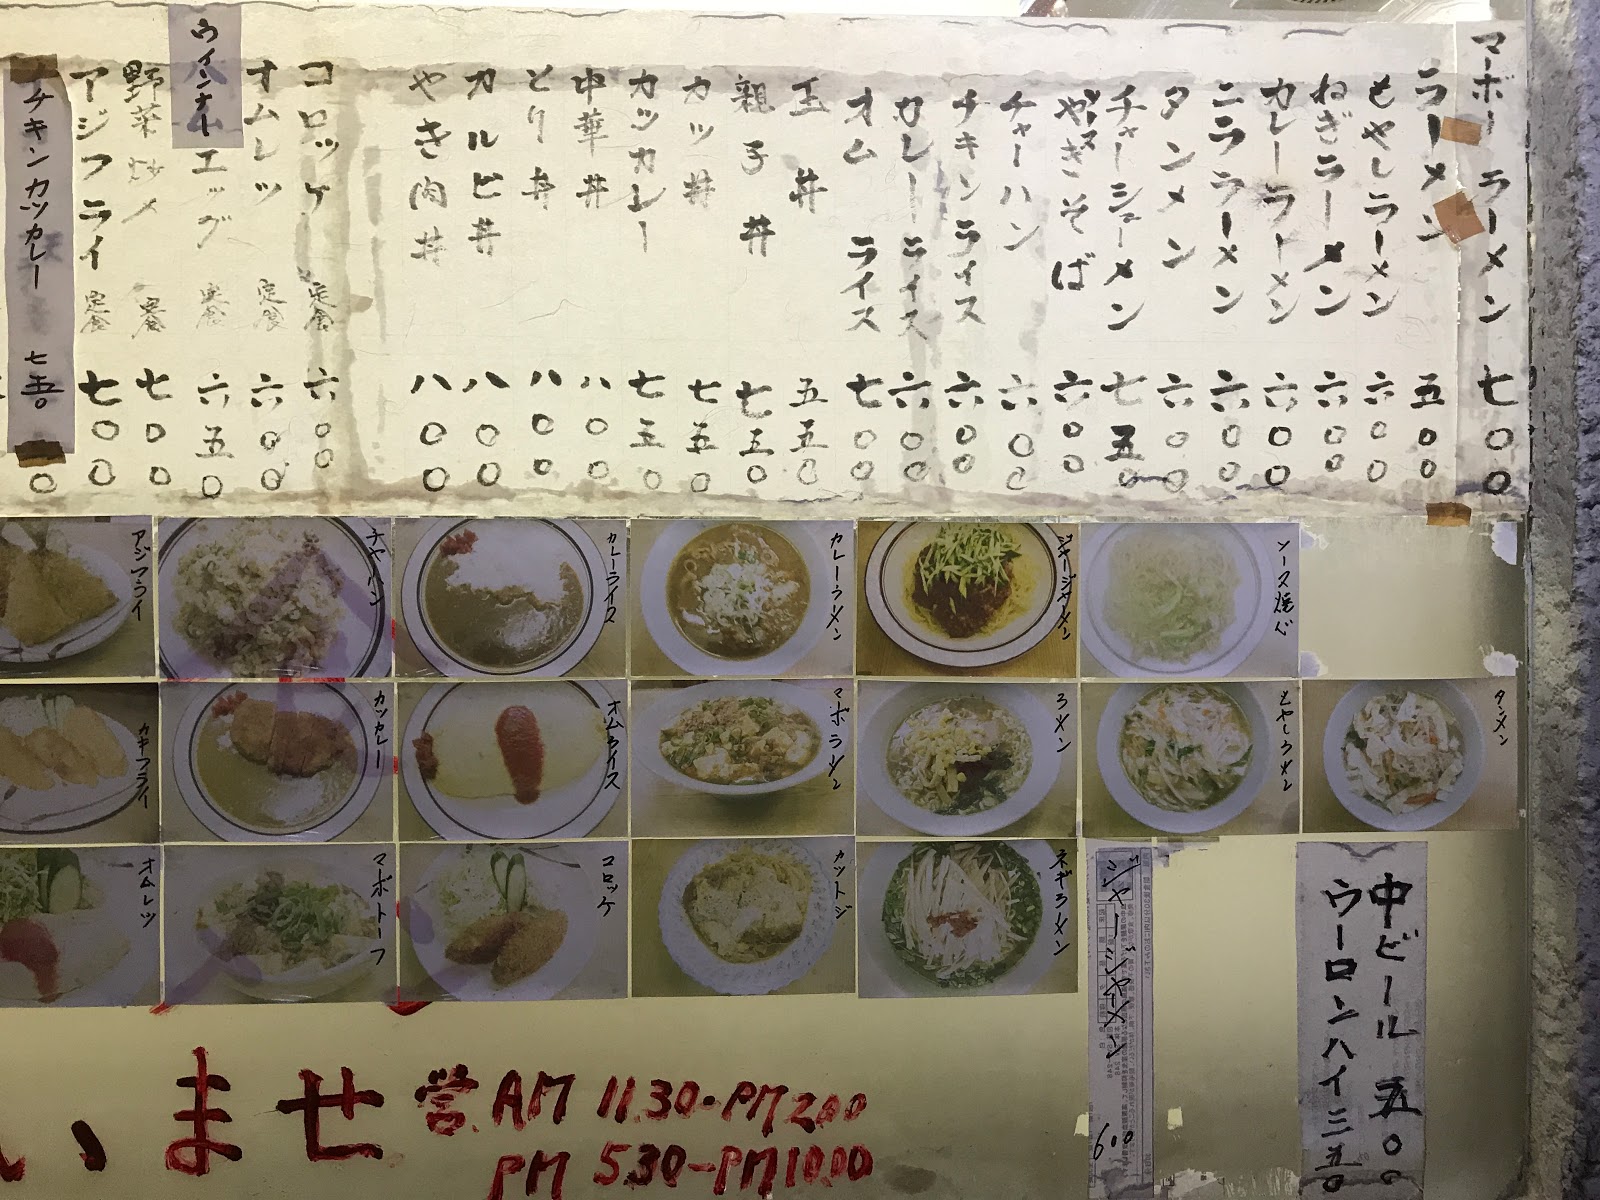 マーボーラーメン 七〇〇
ラーメン 五〇〇
もやしラーメン 六〇〇
ねぎラーメン 六〇〇
カレーラーメン 六〇〇
ニララーメン 六〇〇
タンメン 六〇〇
チャーシューメン 七五〇
やきそば 六〇〇
チャーハン 六〇〇
チキンライス 六〇〇
カレーライス 六〇〇
オムライス 七〇〇
玉丼 五五〇
親子丼 七五〇
カツ丼 七五〇
カツカレー 七五〇
中華丼 八〇〇
とり丼 八〇〇
カルビ丼 八〇〇
やき肉丼 八〇〇
コロッケ 定食 六〇〇
オムレツ 定食 六〇〇
ウインナーエッグ 定食 六五〇
野菜炒メ 定食 七〇〇
アジフライ 定食 七〇〇
チキンカツカレー 七五〇
ソース焼そば
ジャージャーメン
カレーラーメン
カレーライス
チャーハン
アジフライ
タンメン
もやしラメン
ラメン
マーボラメン
オムライス
カツカレー
カキフライ
ネギラメン
カツトジ
コロッケ
マーボトーフ
オムレツ
中ビール 五〇〇
ウーロンハイ 三五〇
ジャージャーメン
600
いませ
営 AM 11.30-PM 2.00
PM 5.30-PM 10.00